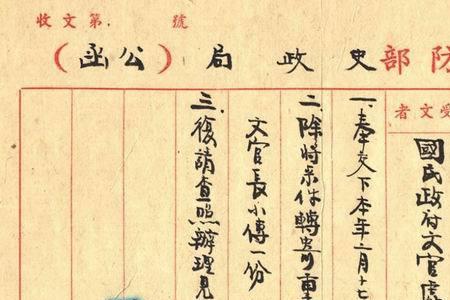 收文第 號
防部史政局(公函)
受文者
國民政府文官處
一、奉交下本年二月十七
二、除將來件轉寄重
文官長小傳一份
三、復請查照辦理見